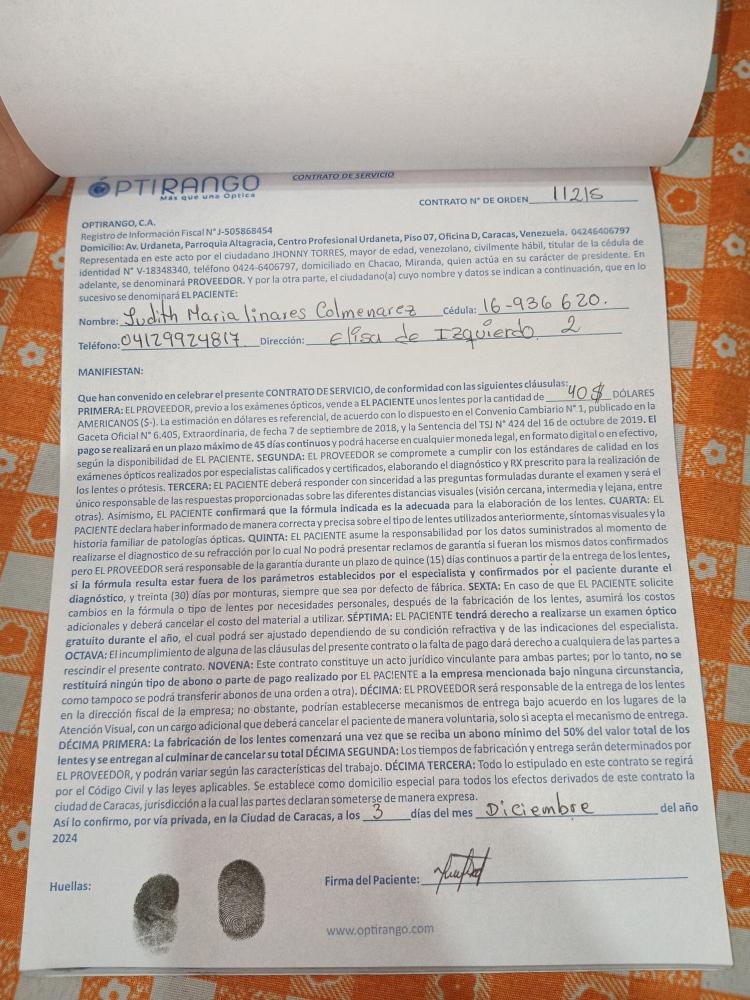 ÓPTIRANGO
Más que una Óptica
CONTRATO DE SERVICIO
CONTRATO N° DE ORDEN 11215
OPTIRANGO, C.A.
Registro de Información Fiscal N° J-505868454
Domicilio: Av. Urdaneta, Parroquia Altagracia, Centro Profesional Urdaneta, Piso 07, Oficina D, Caracas, Venezuela. 04246406797
Representada en este acto por el ciudadano JHONNY TORRES, mayor de edad, venezolano, civilmente hábil, titular de la cédula de
identidad N° V-18348340, teléfono 0424-6406797, domiciliado en Chacao, Miranda, quien actúa en su carácter de presidente. En
adelante, se denominará PROVEEDOR. Y por la otra parte, el ciudadano(a) cuyo nombre y datos se indican a continuación, que en lo
sucesivo se denominará EL PACIENTE:
Nombre: Judith Maria linares Colmenarez Cédula: 16-936 620.
Teléfono: 04129924817 Dirección: Elisa de Izquierdo 2
MANIFIESTAN:
Que han convenido en celebrar el presente CONTRATO DE SERVICIO, de conformidad con las siguientes cláusulas:
PRIMERA: EL PROVEEDOR, previo a los exámenes ópticos, vende a EL PACIENTE unos lentes por la cantidad de 40 $ DÓLARES
AMERICANOS ($-). La estimación en dólares es referencial, de acuerdo con lo dispuesto en el Convenio Cambiario N° 1, publicado en la
Gaceta Oficial N° 6.405, Extraordinaria, de fecha 7 de septiembre de 2018, y la Sentencia del TSJ N° 424 del 16 de octubre de 2019. El
pago se realizará en un plazo máximo de 45 días continuos y podrá hacerse en cualquier moneda legal, en formato digital o en efectivo,
según la disponibilidad de EL PACIENTE. SEGUNDA: EL PROVEEDOR se compromete a cumplir con los estándares de calidad en los
exámenes ópticos realizados por especialistas calificados y certificados, elaborando el diagnóstico y RX prescrito para la realización de
los lentes o prótesis. TERCERA: EL PACIENTE deberá responder con sinceridad a las preguntas formuladas durante el examen y será el
único responsable de las respuestas proporcionadas sobre las diferentes distancias visuales (visión cercana, intermedia y lejana, entre
otras). Asimismo, EL PACIENTE confirmará que la fórmula indicada es la adecuada para la elaboración de los lentes. CUARTA: EL
PACIENTE declara haber informado de manera correcta y precisa sobre el tipo de lentes utilizados anteriormente, síntomas visuales y la
historia familiar de patologías ópticas. QUINTA: EL PACIENTE asume la responsabilidad por los datos suministrados al momento de
realizarse el diagnostico de su refracción por lo cual No podrá presentar reclamos de garantía si fueran los mismos datos confirmados
pero EL PROVEEDOR será responsable de la garantía durante un plazo de quince (15) días continuos a partir de la entrega de los lentes,
si la fórmula resulta estar fuera de los parámetros establecidos por el especialista y confirmados por el paciente durante el
diagnóstico, y treinta (30) días por monturas, siempre que sea por defecto de fábrica. SEXTA: En caso de que EL PACIENTE solicite
cambios en la fórmula o tipo de lentes por necesidades personales, después de la fabricación de los lentes, asumirá los costos
adicionales y deberá cancelar el costo del material a utilizar. SÉPTIMA: EL PACIENTE tendrá derecho a realizarse un examen óptico
gratuito durante el año, el cual podrá ser ajustado dependiendo de su condición refractiva y de las indicaciones del especialista.
OCTAVA: El incumplimiento de alguna de las cláusulas del presente contrato o la falta de pago dará derecho a cualquiera de las partes a
rescindir el presente contrato. NOVENA: Este contrato constituye un acto jurídico vinculante para ambas partes; por lo tanto, no se
restituirá ningún tipo de abono o parte de pago realizado por EL PACIENTE a la empresa mencionada bajo ninguna circunstancia,
como tampoco se podrá transferir abonos de una orden a otra). DÉCIMA: EL PROVEEDOR será responsable de la entrega de los lentes
en la dirección fiscal de la empresa; no obstante, podrían establecerse mecanismos de entrega bajo acuerdo en los lugares de la
Atención Visual, con un cargo adicional que deberá cancelar el paciente de manera voluntaria, solo si acepta el mecanismo de entrega.
DÉCIMA PRIMERA: La fabricación de los lentes comenzará una vez que se reciba un abono mínimo del 50% del valor total de los
lentes y se entregan al culminar de cancelar su total DÉCIMA SEGUNDA: Los tiempos de fabricación y entrega serán determinados por
EL PROVEEDOR, y podrán variar según las características del trabajo. DÉCIMA TERCERA: Todo lo estipulado en este contrato se regirá
por el Código Civil y las leyes aplicables. Se establece como domicilio especial para todos los efectos derivados de este contrato la
ciudad de Caracas, jurisdicción a la cual las partes declaran someterse de manera expresa.
Así lo confirmo, por vía privada, en la Ciudad de Caracas, a los 3 días del mes Diciembre del año
2024
Huellas:
Firma del Paciente:
www.optirango.com